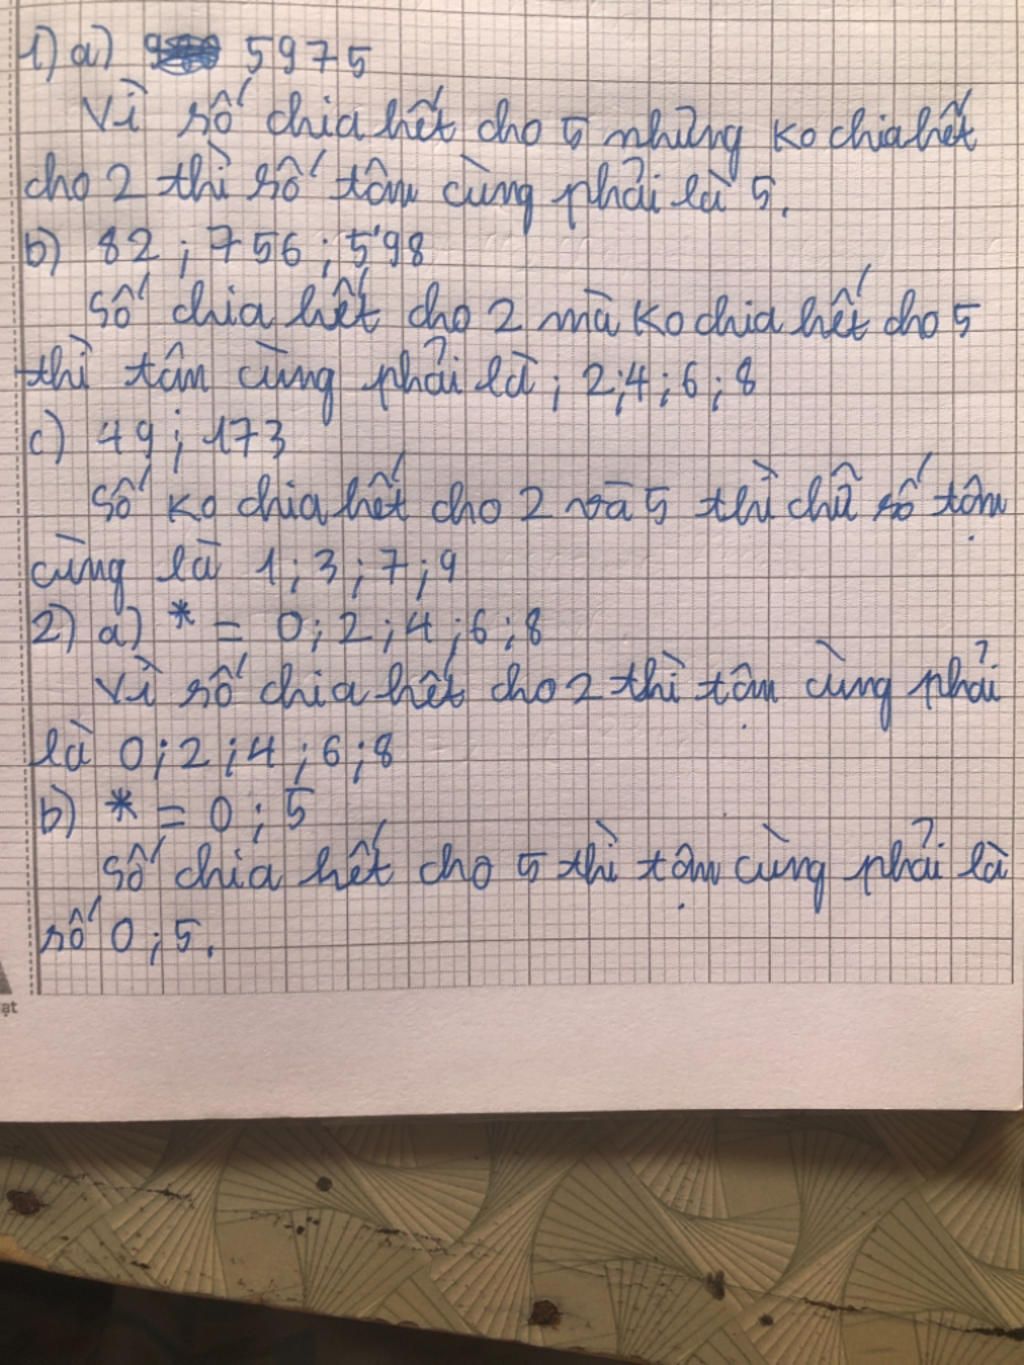 1) a) 5975
Vì số chia hết cho 5 nhưng ko chia hết
cho 2 thì số tân cùng phải là 5.
b) 82 ; 756 ; 598
Số chia hết cho 2 mà ko chia hết cho 5
thì tân cùng phải là ; 2;4;6;8
c) 49 ; 173
Số ko chia hết cho 2 và 5 thì chữ số tận
cùng là 1;3;7;9
2) a) * = 0;2;4;6;8
Vì số chia hết cho 2 thì tận cùng phải
là 0;2;4;6;8
b) * = 0;5
Số chia hết cho 5 thì tận cùng phải là
số 0;5.
ạt